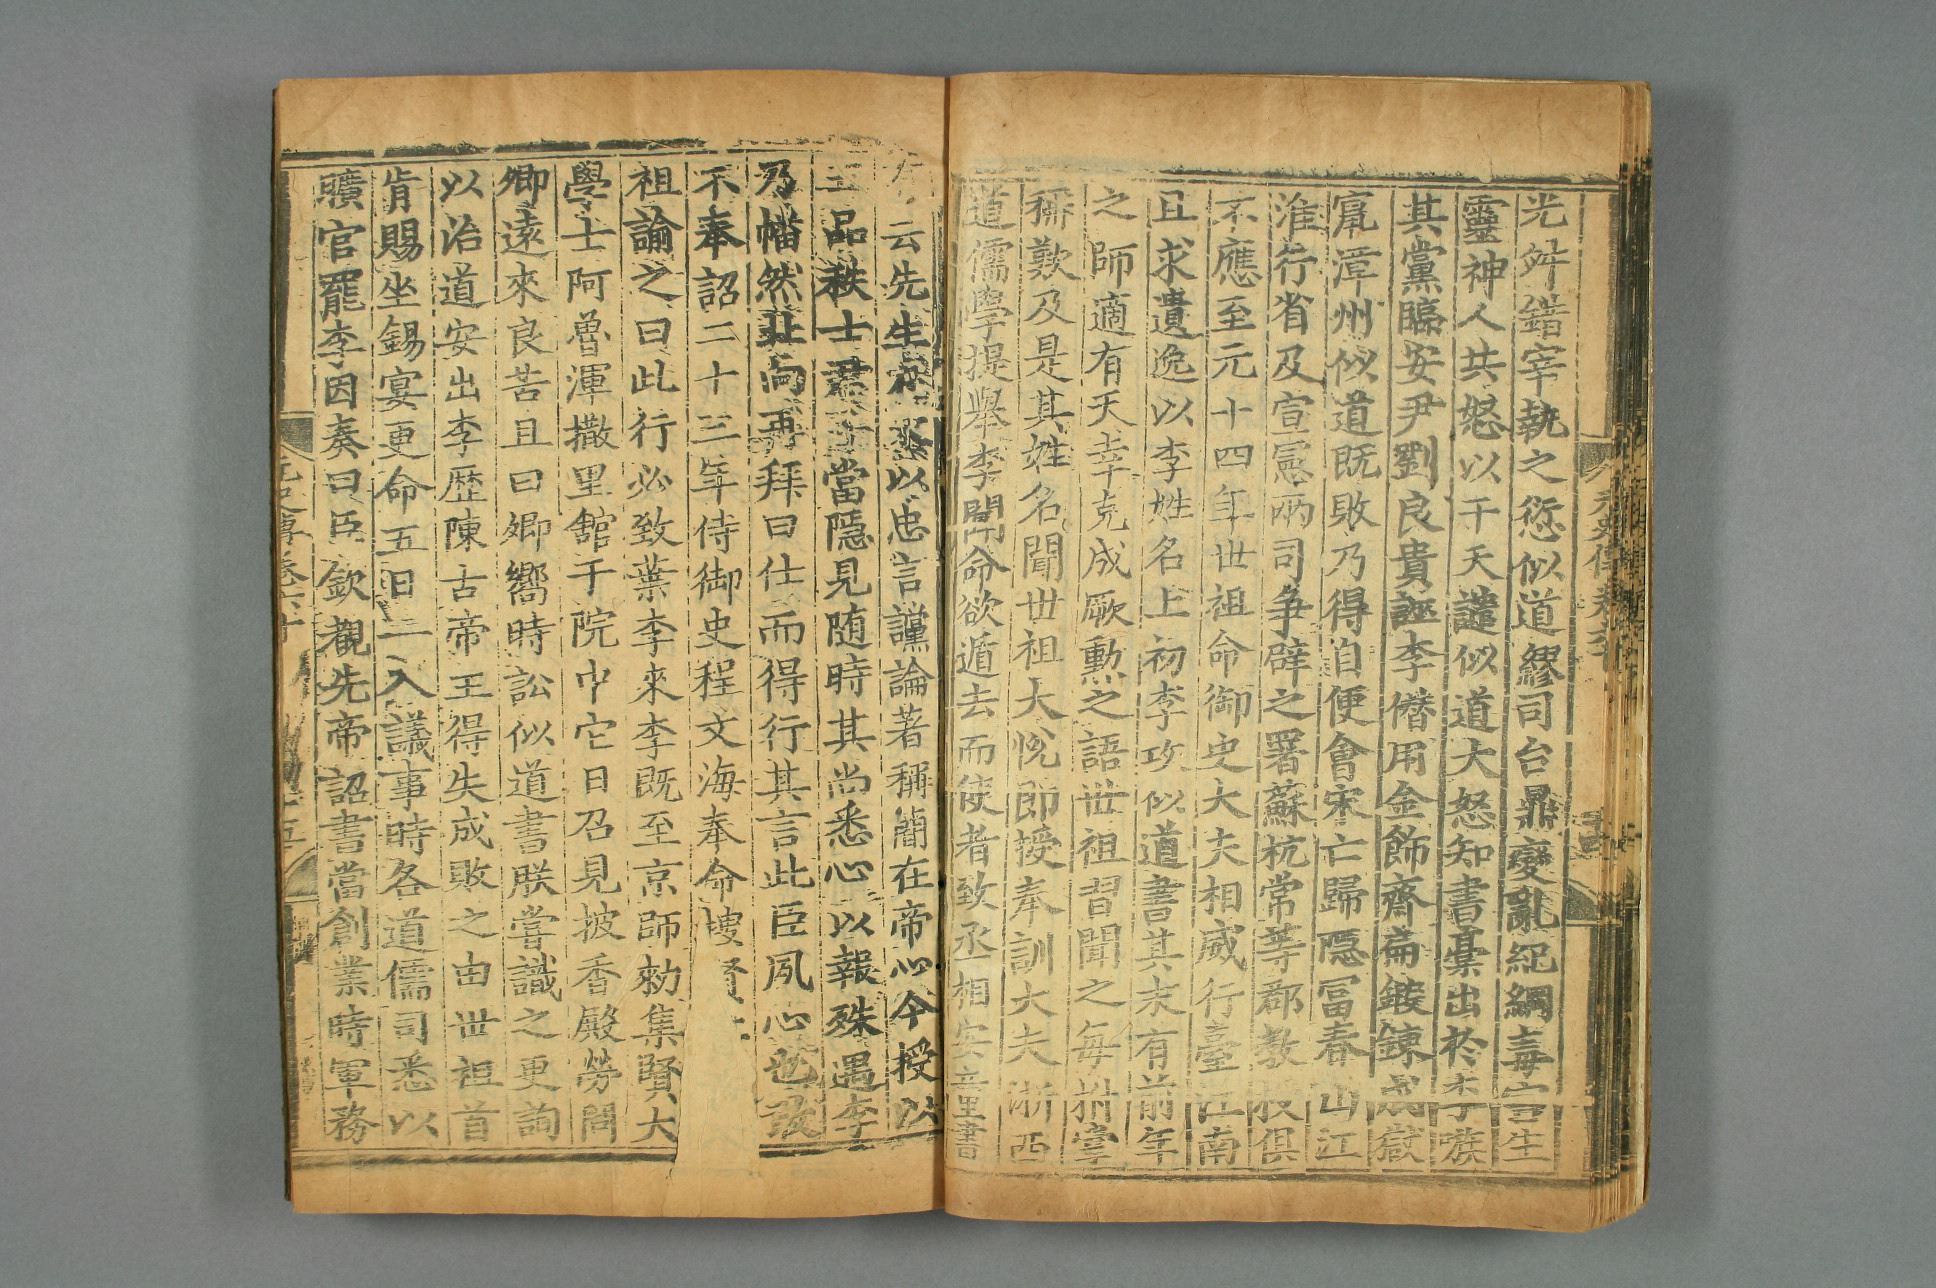 光舛錯宰執之愆似道繆司台鼎變亂紀綱毒害生
靈神人共怒以干天譴似道大怒知書藁出於李嗾
其黨臨安尹劉良貴誣李僭用金飾齋扁鍛鍊成獄
竄漳州似道既敗乃得自便會宋亡歸隱富春山江
淮行省及宣憲兩司争辟之署蘇杭常等郡教授俱
不應至元十四年世祖命御史大夫相威行臺江南
且求遺逸以李姓名上初李攻似道書其末有前年
之師適有天幸克成厥勲之語世祖習聞之每拊掌
稱歎及是其姓名聞世祖大悦即授奉訓大夫浙西
道儒學提舉李聞命欲遁去而使者致丞相安童書
云先生在宋以忠言讜論著稱簡在帝心今授以
五品秩士君子當隱見随時其尚悉心以報殊遇李
乃幡然北向再拜曰仕而得行其言此臣夙心也敢
不奉詔二十三年侍御史程文海奉命
祖諭之曰此行必致葉李來李既至京師勑集賢大
學士阿魯渾撒里舘于院中它日召見披香殿勞問
卿遠來良苦且曰卿嚮時訟似道書朕嘗識之更詢
以治道安出李歷陳古帝王得失成敗之由世祖首
肯賜坐錫宴更命五日一入議事時各道儒司悉以
曠官罷李因奏曰臣欽覩先帝詔書當創業時軍務